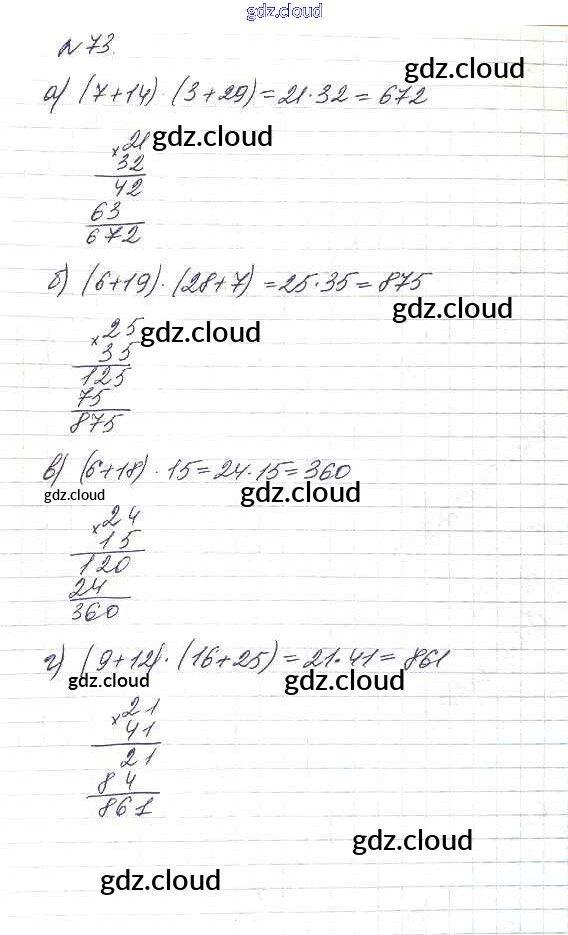 gdz.cloud
№ 73.
gdz.cloud
а) (7+14) · (3+29) = 21·32 = 672
×21 gdz.cloud
32
42
63
672
б) (6+19) · (28+7) = 25·35 = 875
gdz.cloud
×25 gdz.cloud
35
125
75
875
в) (6+18) · 15 = 24·15 = 360
gdz.cloud gdz.cloud
×24
15
120
24
360
г) (9+12) · (16+25) = 21·41 = 861
gdz.cloud gdz.cloud
×21
41
21
84
861
gdz.cloud
gdz.cloud